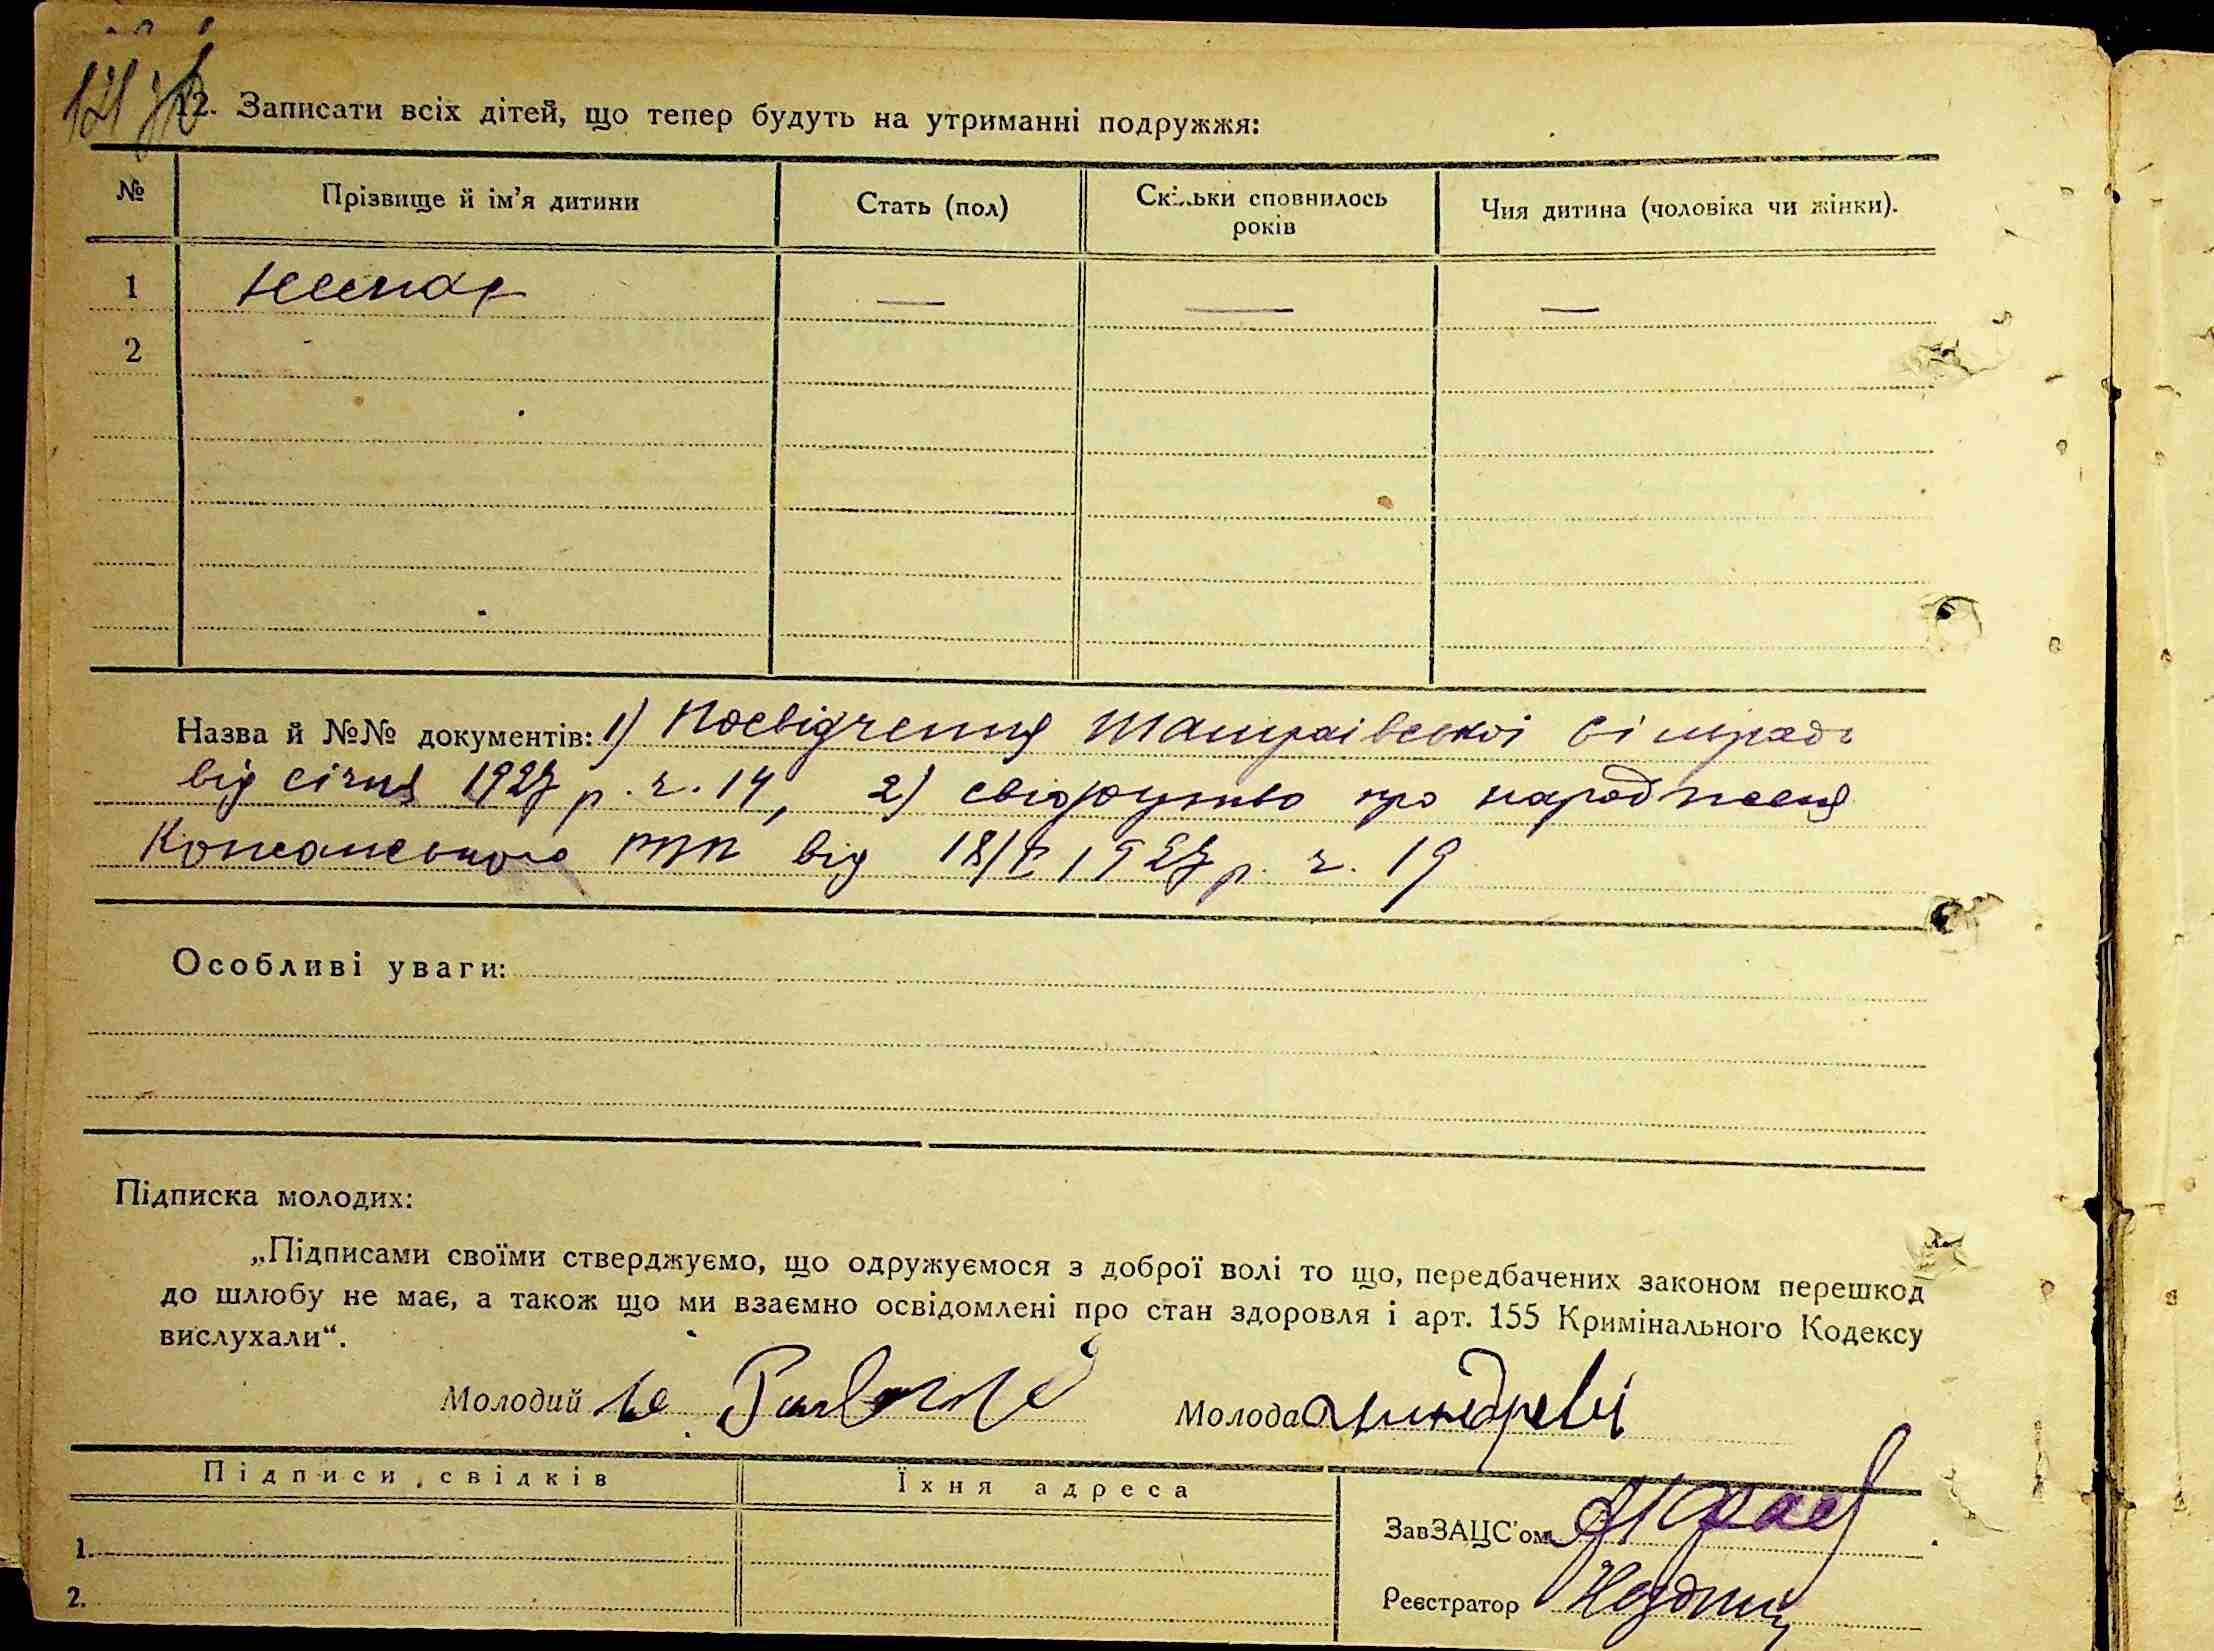 121 зв
12. Записати всіх дітей, що тепер будуть на утриманні подружжя:
№ Прізвище й ім’я дитини Стать (пол) Скільки сповнилось років Чия дитина (чоловіка чи жінки).
1 немає — — —
2
Назва й №№ документів: 1) Посвідчення сільради
від січня 1927 р. ч. 14, 2) свідоцтво про народження
Кожанського від 18/I 1927 р. ч. 19
Особливі уваги:
Підписка молодих:
„Підписами своїми стверджуємо, що одружуємося з доброї волі то що, передбачених законом перешкод
до шлюбу не має, а також що ми взаємно освідомлені про стан здоровля і арт. 155 Кримінального Кодексу
вислухали“.
Молодий Молода
Підписи свідків Їхня адреса
ЗавЗАЦС'ом
1.
Реєстратор
2.